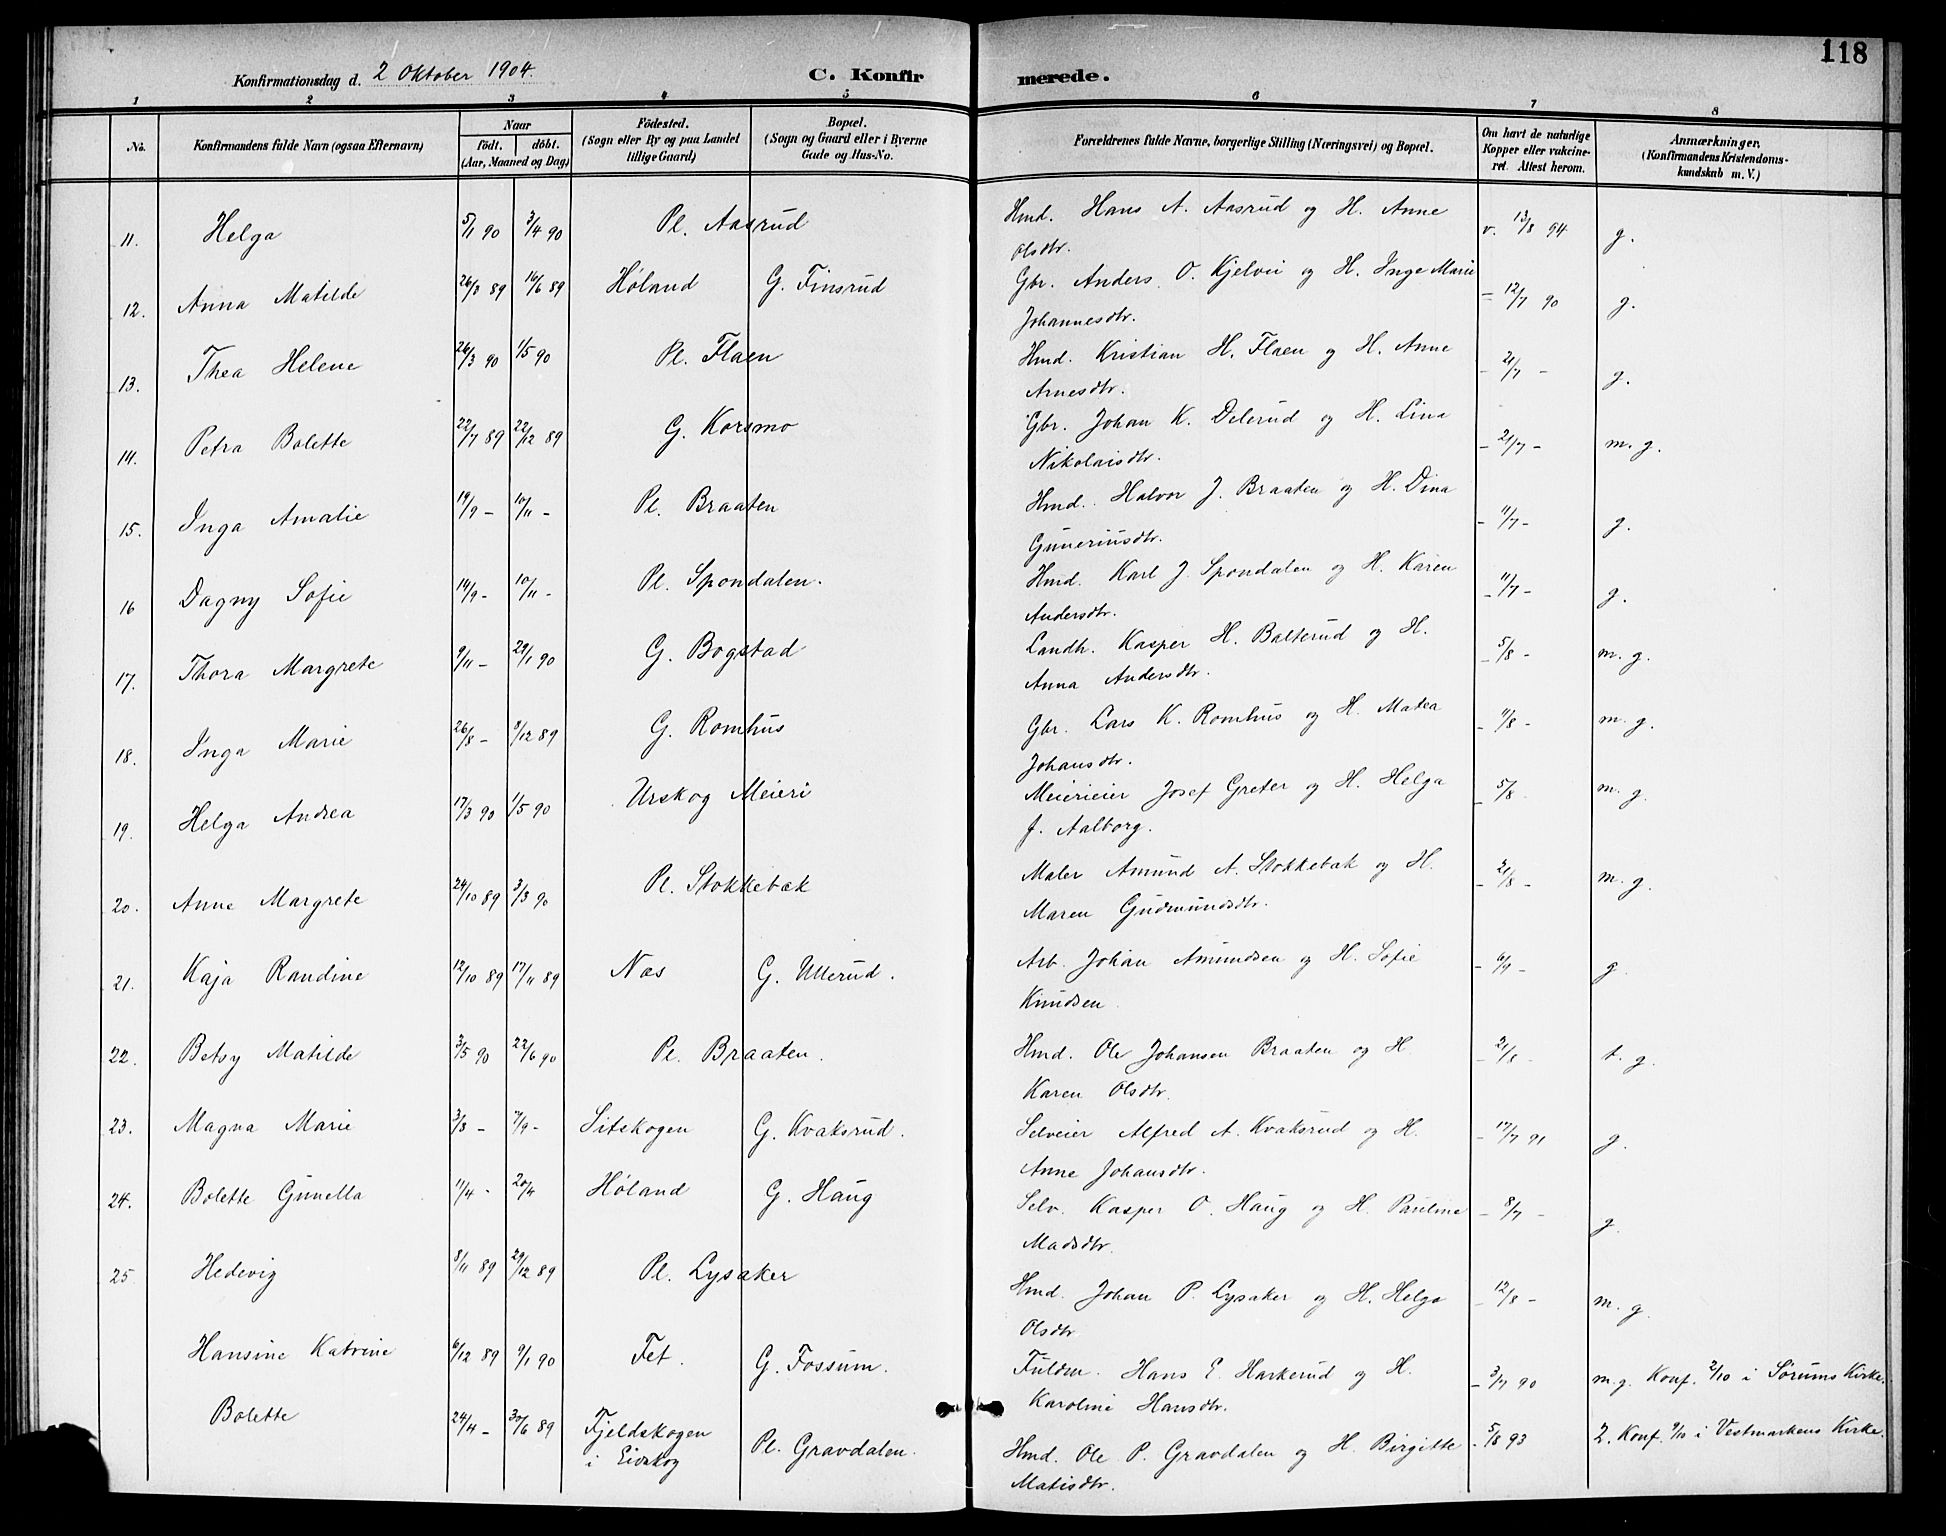 118
Konfirmationsdag d. 2 Oktober 1904.
C. Konfirmerede.
1 2 3 4 5 6 7 8
No. Konfirmandens fulde Navn (ogsaa Efternavn) Naar födt. döbt. (Aar, Maaned og Dag) Födested. (Sogn eller By og paa Landet tillige Gaard) Bopæl. (Sogn og Gaard eller i Byerne Gade og Hus-No. Forældrenes fulde Navne, borgerlige Stilling (Næringsvei) og Bopæl. Om havt de naturlige Kopper eller vakcineret. Attest herom. Anmærkninger, (Konfirmandens Kristendomskundskab m. V.)
11. Helga 5/1 90 3/4 90 Pl. Aasrud Hmd. Hans A. Aasrud og H. Anne v. 13/8 94 g.
Olsdtr.
12. Anna Matilde 26/3 89 16/6 89 Høland G. Finsrud Gbr. Anders O. Kjelvei og H. Inge Marie – 12/7 90 g.
Johannesdtr.
13. Thea Helene 26/3 90 1/5 90 Pl. Flaen Hmd. Kristian H. Flaen og H. Anne – 21/7 – g.
Arnesdtr.
14. Petra Bolette 22/7 89 22/12 89 G. Korsmo Gbr. Johan K. Delerud og H. Lina – 21/7 – m. g.
Nikolaisdtr.
15. Inga Amalie 19/9 – 10/11 – Pl. Braaten Hmd. Halvor J. Braaten og H. Dina – 11/7 – g.
Guneriusdtr.
16 Dagny Sofie 14/9 – 10/11 – Pl. Spondalen. Hmd. Karl J. Spondalen og H. Karen – 11/7 – g.
Andersdtr.
17. Thora Margrete 9/11 – 29/1 90 G. Bogstad Landh. Kasper H. Balterud og H. – 5/8 – m. g.
Anna Andersdtr.
18. Inga Marie 26/8 – 8/12 89 G. Romhus Gbr. Lars K. Romhus og H. Matea – 11/8 – m. g.
Johansdtr.
19. Helga Andrea 17/3 90 1/5 90 Urskog Meieri Meierieier Josef Greter og H. Helga – 5/8 – m. g.
f. Aalborg.
20. Anne Margrete 24/10 89 3/3 90 Pl. Stokkebæk Maler Amund A. Stokkebæk og H. – 21/8 – m. g.
Maren Gudmundsdtr.
21. Kaja Randine 12/10 89 17/11 89 Næs G. Ullerud. Arb. Johan Amundsen og H. Sofie – 6/9 – g.
Knudsen
22. Betsy Matilde 3/5 90 22/6 90 Pl. Braaten. Hmd. Ole Johansen Braaten og H – 21/8 – t. g.
Karen Olsdtr.
23. Magna Marie 3/8 – 7/9 – Sitskogen G. Kvaksrud. Selveier Alfred A. Kvaksrud og H. – 17/7 91 g.
Anne Johansdtr.
24. Bolette Gunella 11/4 – 20/4 Høland G. Haug Selv. Kasper O. Haug og H. Pauline – 8/7 – g.
Madsdtr.
25. Hedevig 8/11 89 29/12 89 Pl. Lysaker Hmd. Johan P. Lysaker og H. Helga – 12/8 – m. g
Olsdtr
Hansine Katrine 6/12 89 9/1 90 Fet. G. Fossum. Fuldm. Hans E. Harkerud og H. – 3/7 90 m. g. Konf. 2/10 i Sørums Kirke.
Karoline Hansdtr.
Bolette 24/4 – 30/6 89 Fjeldskogen Pl. Gravdalen. Hmd. Ole P. Gravdalen og H. Birgitte – 5/8 93 2. Konf. 9/10 i Vestmarkens Kirke.
i Eidskog Matisdtr.